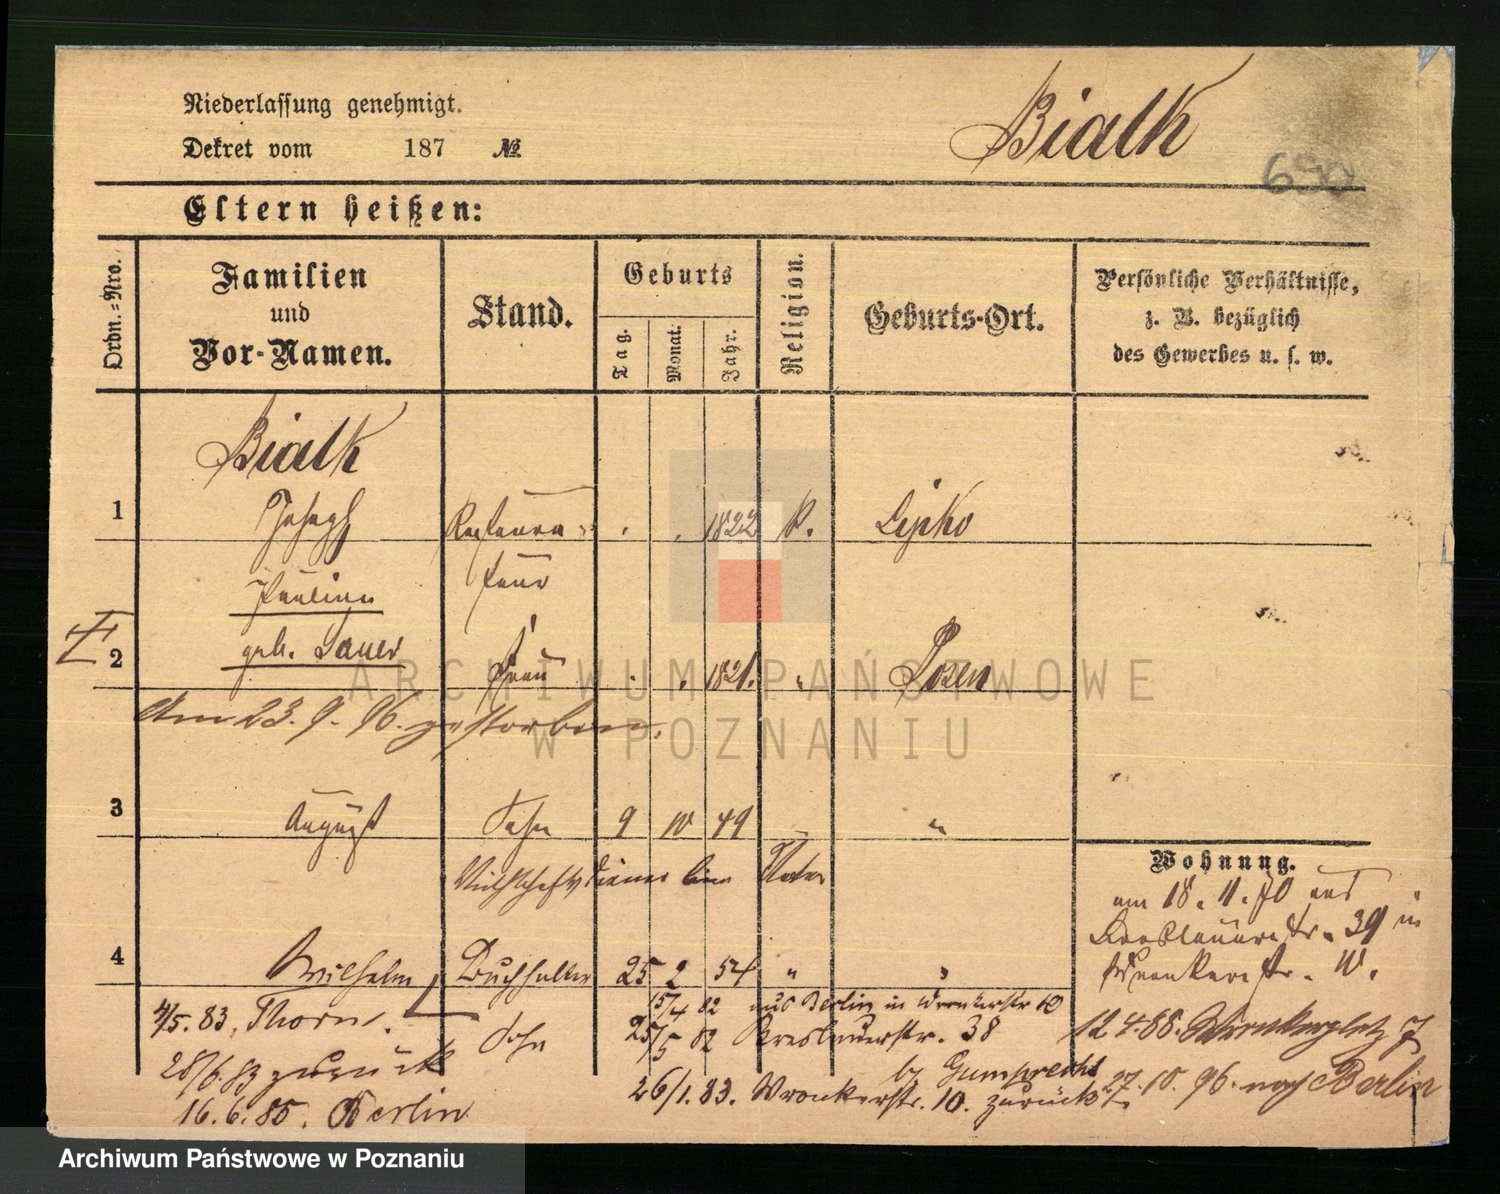 Niederlassung genehmigt.
Dekret vom 187 №
Bialk
690
Eltern heißen:
Ordn.-Nro.
Familien
und
Vor-Namen.
Stand.
Geburts
Tag.
Monat.
Jahr.
Religion.
Geburts-Ort.
Persönliche Verhältnisse,
z. B. bezüglich
des Gewerbes u. s. w.
Bialk
1 Joseph 1822 k. Lipko
Pauline
geb. Sauer
2 Frau 1821. " Posen
Am 23. 9. 96. gestorben.
3 August Sohn 9 10 49 "
beim Vater
Wohnung.
am 18. 11. 70 aus
Breslauerstr. 39 in
Wronkerstr. 10.
4 Wilhelm Buchhalter 25 2 54 " "
15/4 82 aus Berlin in Wronkerstr 10
4/5. 83. Thorn.
Sohn
25/5 82 Breslauerstr. 38
12.4.88. Wronkerplatz 7
28/6. 83 zurück
by Gumprecht
26/1. 83. Wronkerstr. 10. zurück
27. 10. 96. nach Berlin
16. 6. 85. Berlin
ARCHIWUM PAŃSTWOWE
W POZNANIU
Archiwum Państwowe w Poznaniu